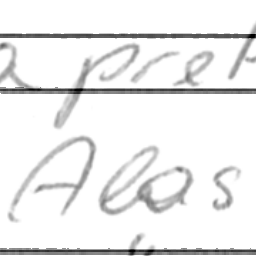 a pret
Alas